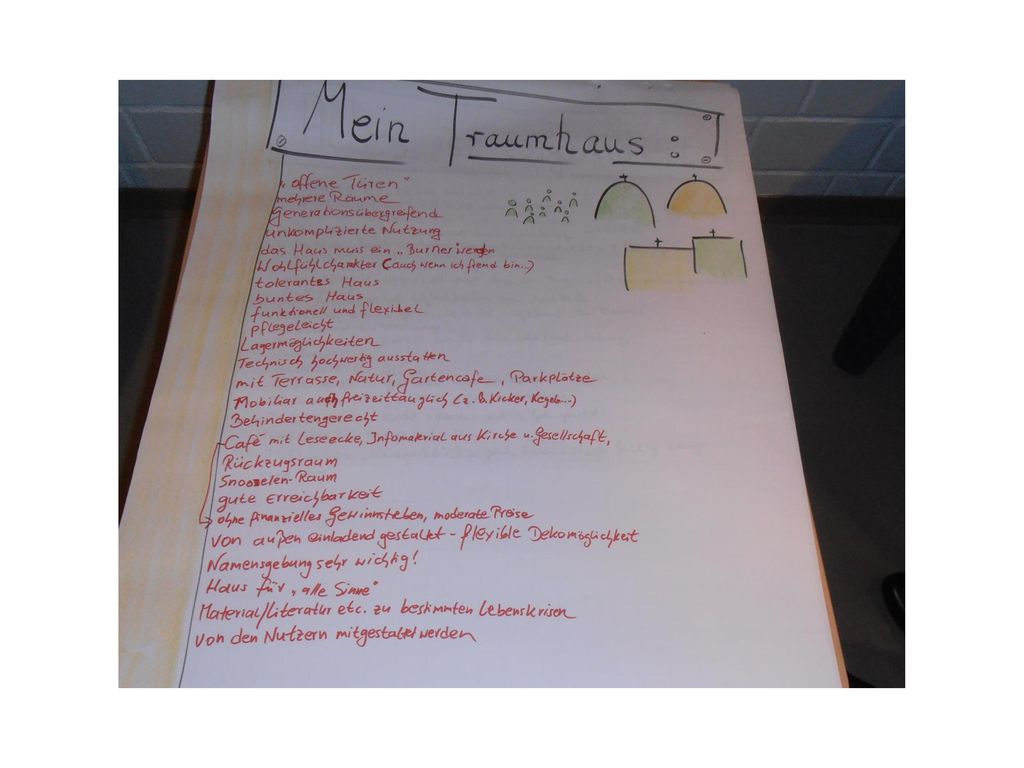 Mein Traumhaus :
„offene Türen"
mehrere Räume
Generationsübergreifend
unkomplizierte Nutzung
das Haus muss ein „Burner werden
Wohlfühlcharakter (auch wenn ich fremd bin...)
tolerantes Haus
buntes Haus
funktionell und flexibel
pflegeleicht
Lagermöglichkeiten
Technisch hochwertig ausstatten
mit Terrasse, Natur, Gartencafe, Parkplätze
Mobiliar auch freizeittauglich (z.B. Kicker, Kegeln...)
Behindertengerecht
Café mit Leseecke, Infomaterial aus Kirche u. Gesellschaft,
Rückzugsraum
Snoozelen-Raum
gute Erreichbarkeit
ohne finanzielles Gewinnstreben, moderate Preise
von außen einladend gestaltet - flexible Dekomöglichkeit
Namensgebung sehr wichtig!
Haus für „alle Sinne"
Material/Literatur etc. zu bestimmten Lebenskrisen
von den Nutzern mitgestaltet werden